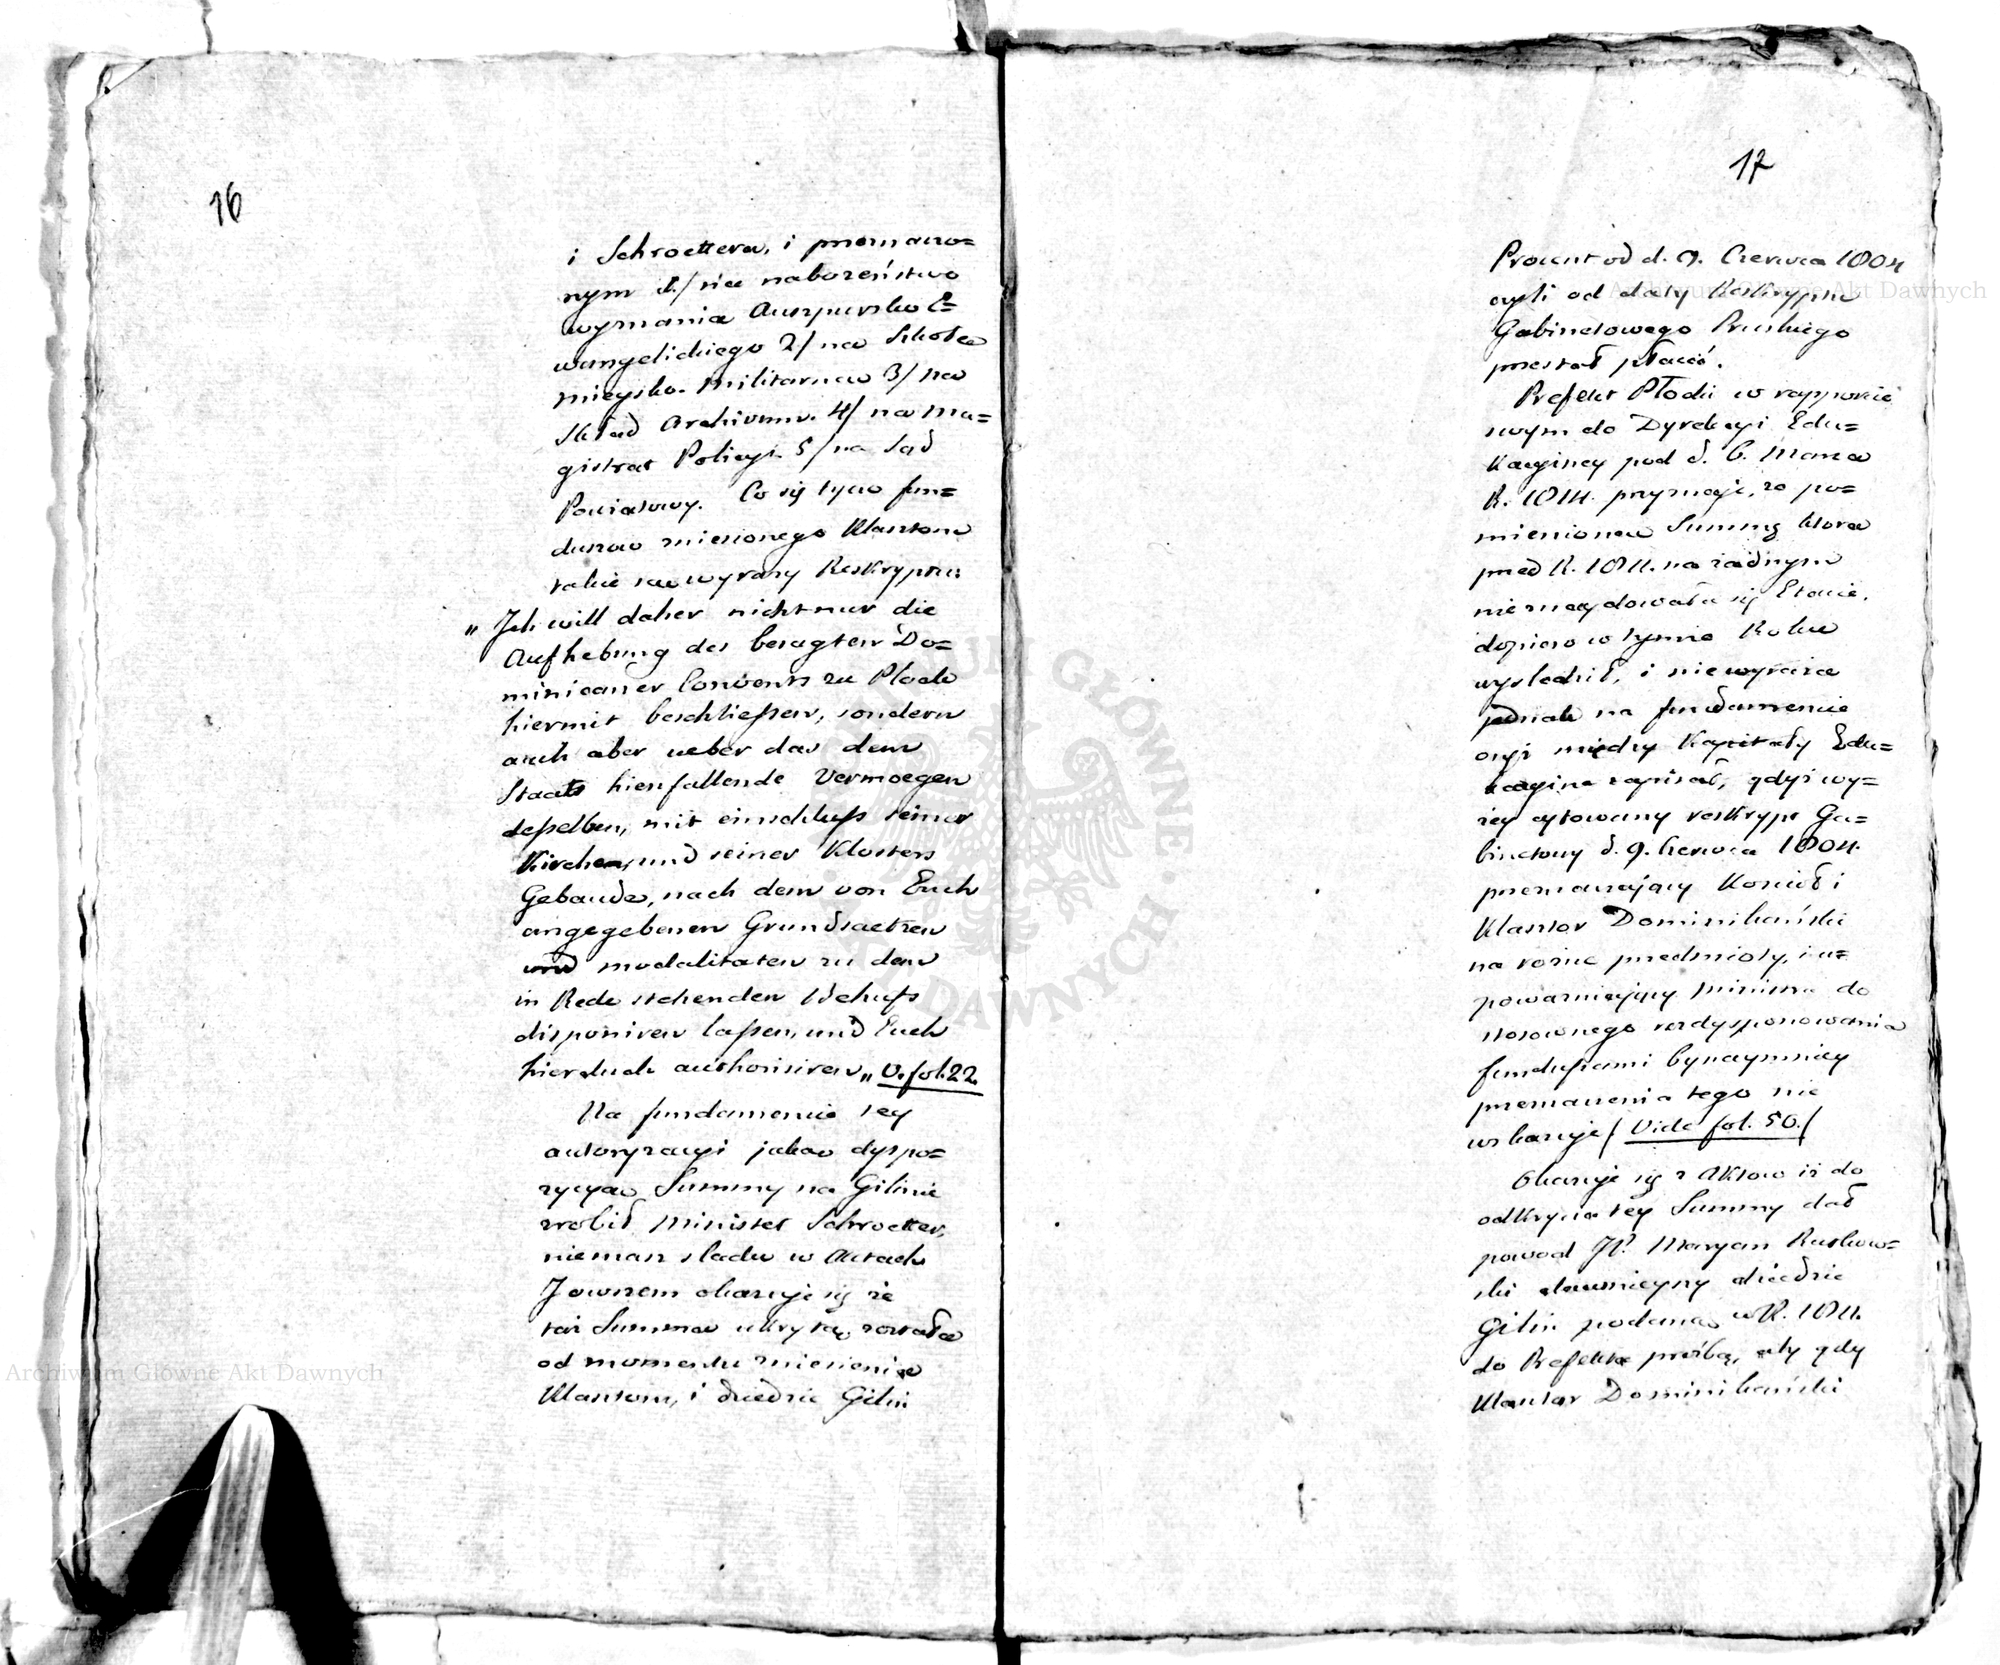 16
i Schroettera, i przeznaczo=
nym 1./ na nabożeństwo
wyznania Auszpursko E=
wangelickiego 2/ na Szkołę
mieysko-Militarną 3/ na
Skład Archivum. 4/ na Ma=
gistrat Policyi 5/ na Sąd
Powiatowy. Co się tycze fun=
duszow zniesionego Klasztoru
takie są wyrazy Reskryptu:
„ Ich will daher nicht nur die
Aufhebung des besagten Do=
minicaner Convents zu Plock
hiermit beschließen, sondern
auch aber ueber das dem
Staats hienfallende Vermoegen
deßelben, mit einschluß seiner
Kirchen, und seiner Klosters
Gebaude, nach dem von Euch
angegebenen Grundsaetzen
und modalitaten zu dem
in Rede stehenden Behufs
disponiren laßen, und Euch
hierduch authorisiren „ V. fol. 22.
Na fundamencie tey
autoryzacyi jaką dyspo=
zycyą Summy na Gilinie
zrobił Minister Schroetter,
niemasz sladu w Aktach
Jowszem okazuje się że
taż Summa ukrytą została
od momentu zniesienia
Klasztoru, i dziedzic Gilin
17
Procent od d. 9. Czerwca 1804
czyli od daty Reskryptu
Gabinetowego Pruskiego
przestał płacić.
Prefekt Płocki w rapporcie
swym do Dyrekcyi Edu=
kacyiney pod d. 6. Marca
R. 1814. przyznaje, że po=
mienioną Summę ktora
przed R. 1811. na żadnym
nie znaydowała się Etacie,
dopiero w tymże Roku
wysledził, i niewyraża
jednak na fundamencie
czyi między Kapitały Edu=
kacyine zapisał, gdyż wy=
żey cytowany reskrypt Ga=
binetowy d. 9. Czerwca 1804.
przeznaczający Kościoł i
Klasztor Dominikański
na rożne przedmioty, i u=
poważniający Ministra do
stosownego rozdysponowania
funduszami bynaymniey
przeznaczenia tego nie
wskazuje / Vide fol. 50. /
Okazuje się z Aktow iż do
odkrycia tey Summy dał
powod JP. Maryan Rutkow=
ski dawnieyszy dziedzic
Gilin podaną w R. 1811.
do Prefekta prośbą, aby gdy
Klasztor Dominikański